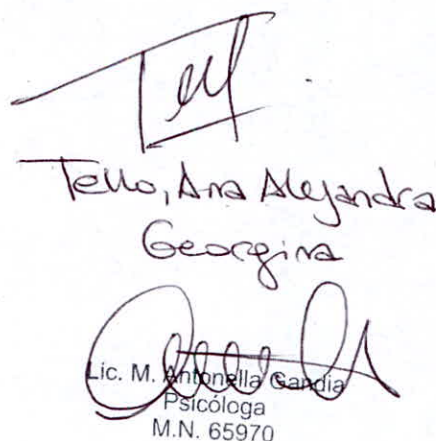 Tello, Ana Alejandra
Georgina
Lic. M. Antonella Gandia
Psicóloga
M.N. 65970